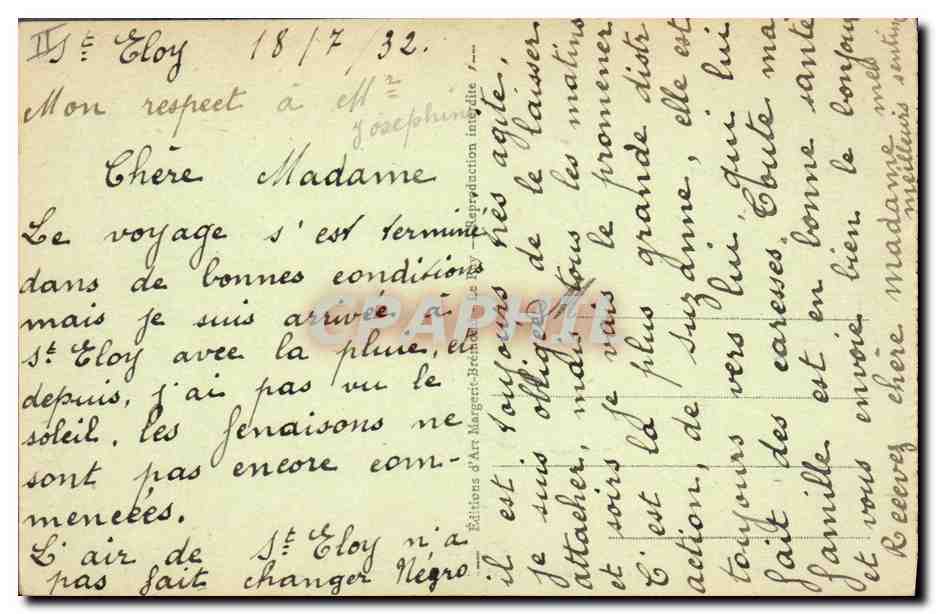 II
St Eloy 18/7/32.
Mon respect à Mr
Joséphine
Chère Madame
Le voyage s'est terminé,
dans de bonnes conditions
mais je suis arrivée à
St Eloy avec la pluie, et
depuis, j'ai pas vu le
soleil. les fenaisons ne
sont pas encore com-
mencées.
L'air de St Eloy n'a
pas fait changer Négro
Éditions d'Art Margerit-Brémond, Le Puy — Reproduction interdite
il est toujours très agité,
je suis obligée de le laisser
attacher, mais tous les matins
et soirs je vais le promener
C'est la plus grande distr
action, de suzanne, elle est
toujours vers lui, qui lui
fait des caresses. Toute ma
famille est en bonne santé
et vous envoie bien le bonjour
Recevez chère madame mes
meilleurs sentim
CPAPHIL